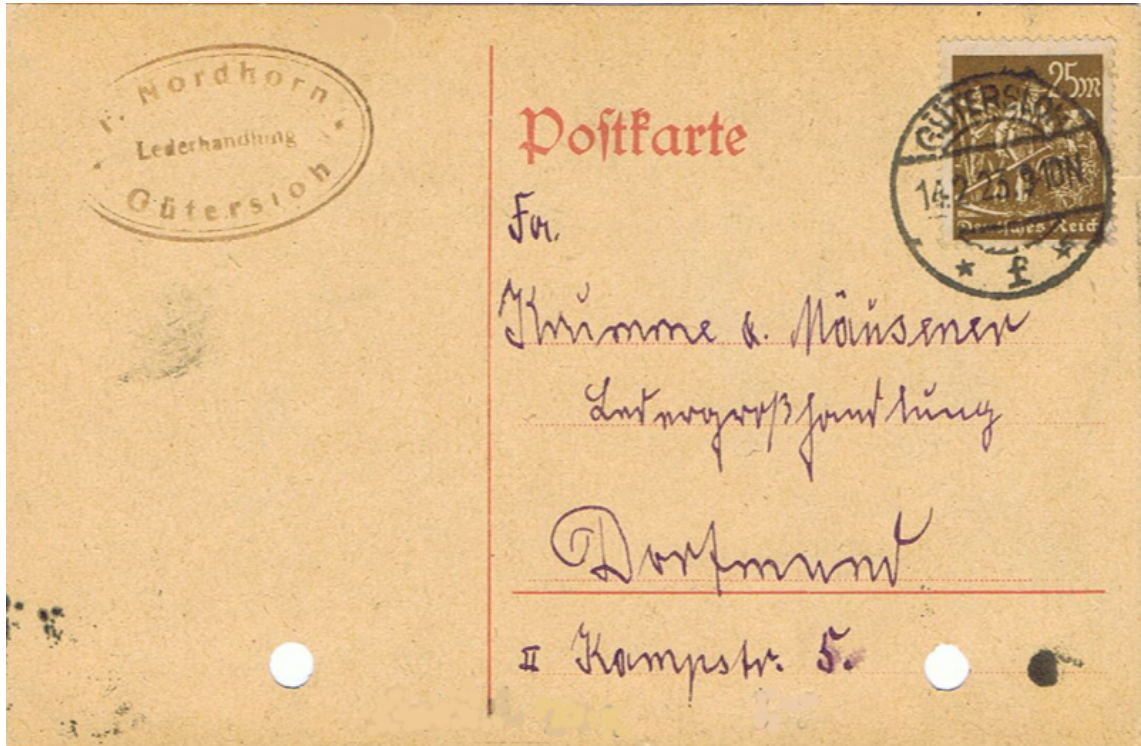 Nordhorn
Lederhandlung
Gütersloh
Postkarte
25m
GÜTERSLOH
14.2.23.9-10N
Deutsches Reich
* f *
Fa.
Krumme &. Mäusener
Ledergroßhandlung
Dortmund
II Kampstr. 5.